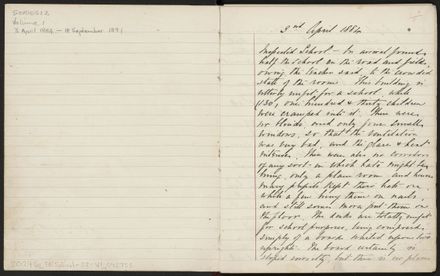 SERIES 12
Volume 1
3 April 1884 – 18 September 1891
1
3rd April 1884
Inspected School – On arrival found
half the school on the road and fields
owing the teacher said, to the crowded
state of the rooms. This building is
utterly unfit for a school, while
(130) one hundred & thirty children
were crammed into it. There were
no blinds and only four small
windows, so that the ventilation
was very bad, and the glare & heat
intense. There were also no corridors
of any sort in which hats might be
hung, only a plain room and hence
many pupils kept their hats on
while a few hung them on nails
and still some more put them on
the floor. The desks are totally unfit
for school purposes, being composed
simply of a board nailed upon two
uprights. The board certainly is
sloped correctly, but there is no place